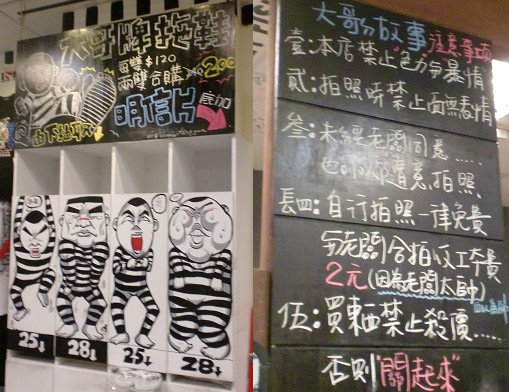 大哥牌拖鞋
每雙$120
兩雙合購 200
明信片
底加
25↓
28↓
25↓
28↓
大哥ㄉ故事 注意事項
壹:本店禁止"色"力ㄅ暴情
貳:拍照時禁止面無表情
叁:未經老闆同意.....
也可以隨意拍照.
肆:自行拍照一律免費
ㄅ老闆合拍收工本費
2元(因為老闆太帥)
伍:買東西禁止殺價.....
否則"關起來"